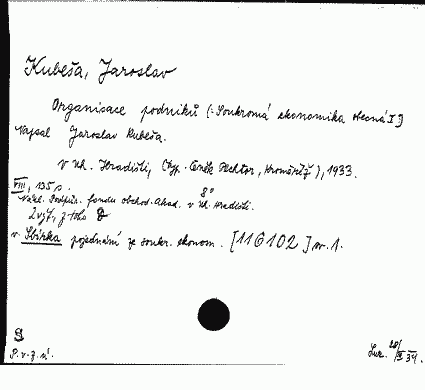 Kubeša, Jaroslav
Organisace podniků (:Soukromá ekonomika obecná I:)
Napsal Jaroslav Kubeša.
V Uh. Hradišti, (typ. Čeněk Pechtor, Kroměříž), 1933.
VIII, 135 s. 8°
Nákl. Podpůr. fondu obchod. Akad. v Uh. Hradišti.
2 výt., z toho D
v. Sbírka pojednání ze soukr. ekonom. [116102] sv. 1.
P. v. z. n.
28/ 34.